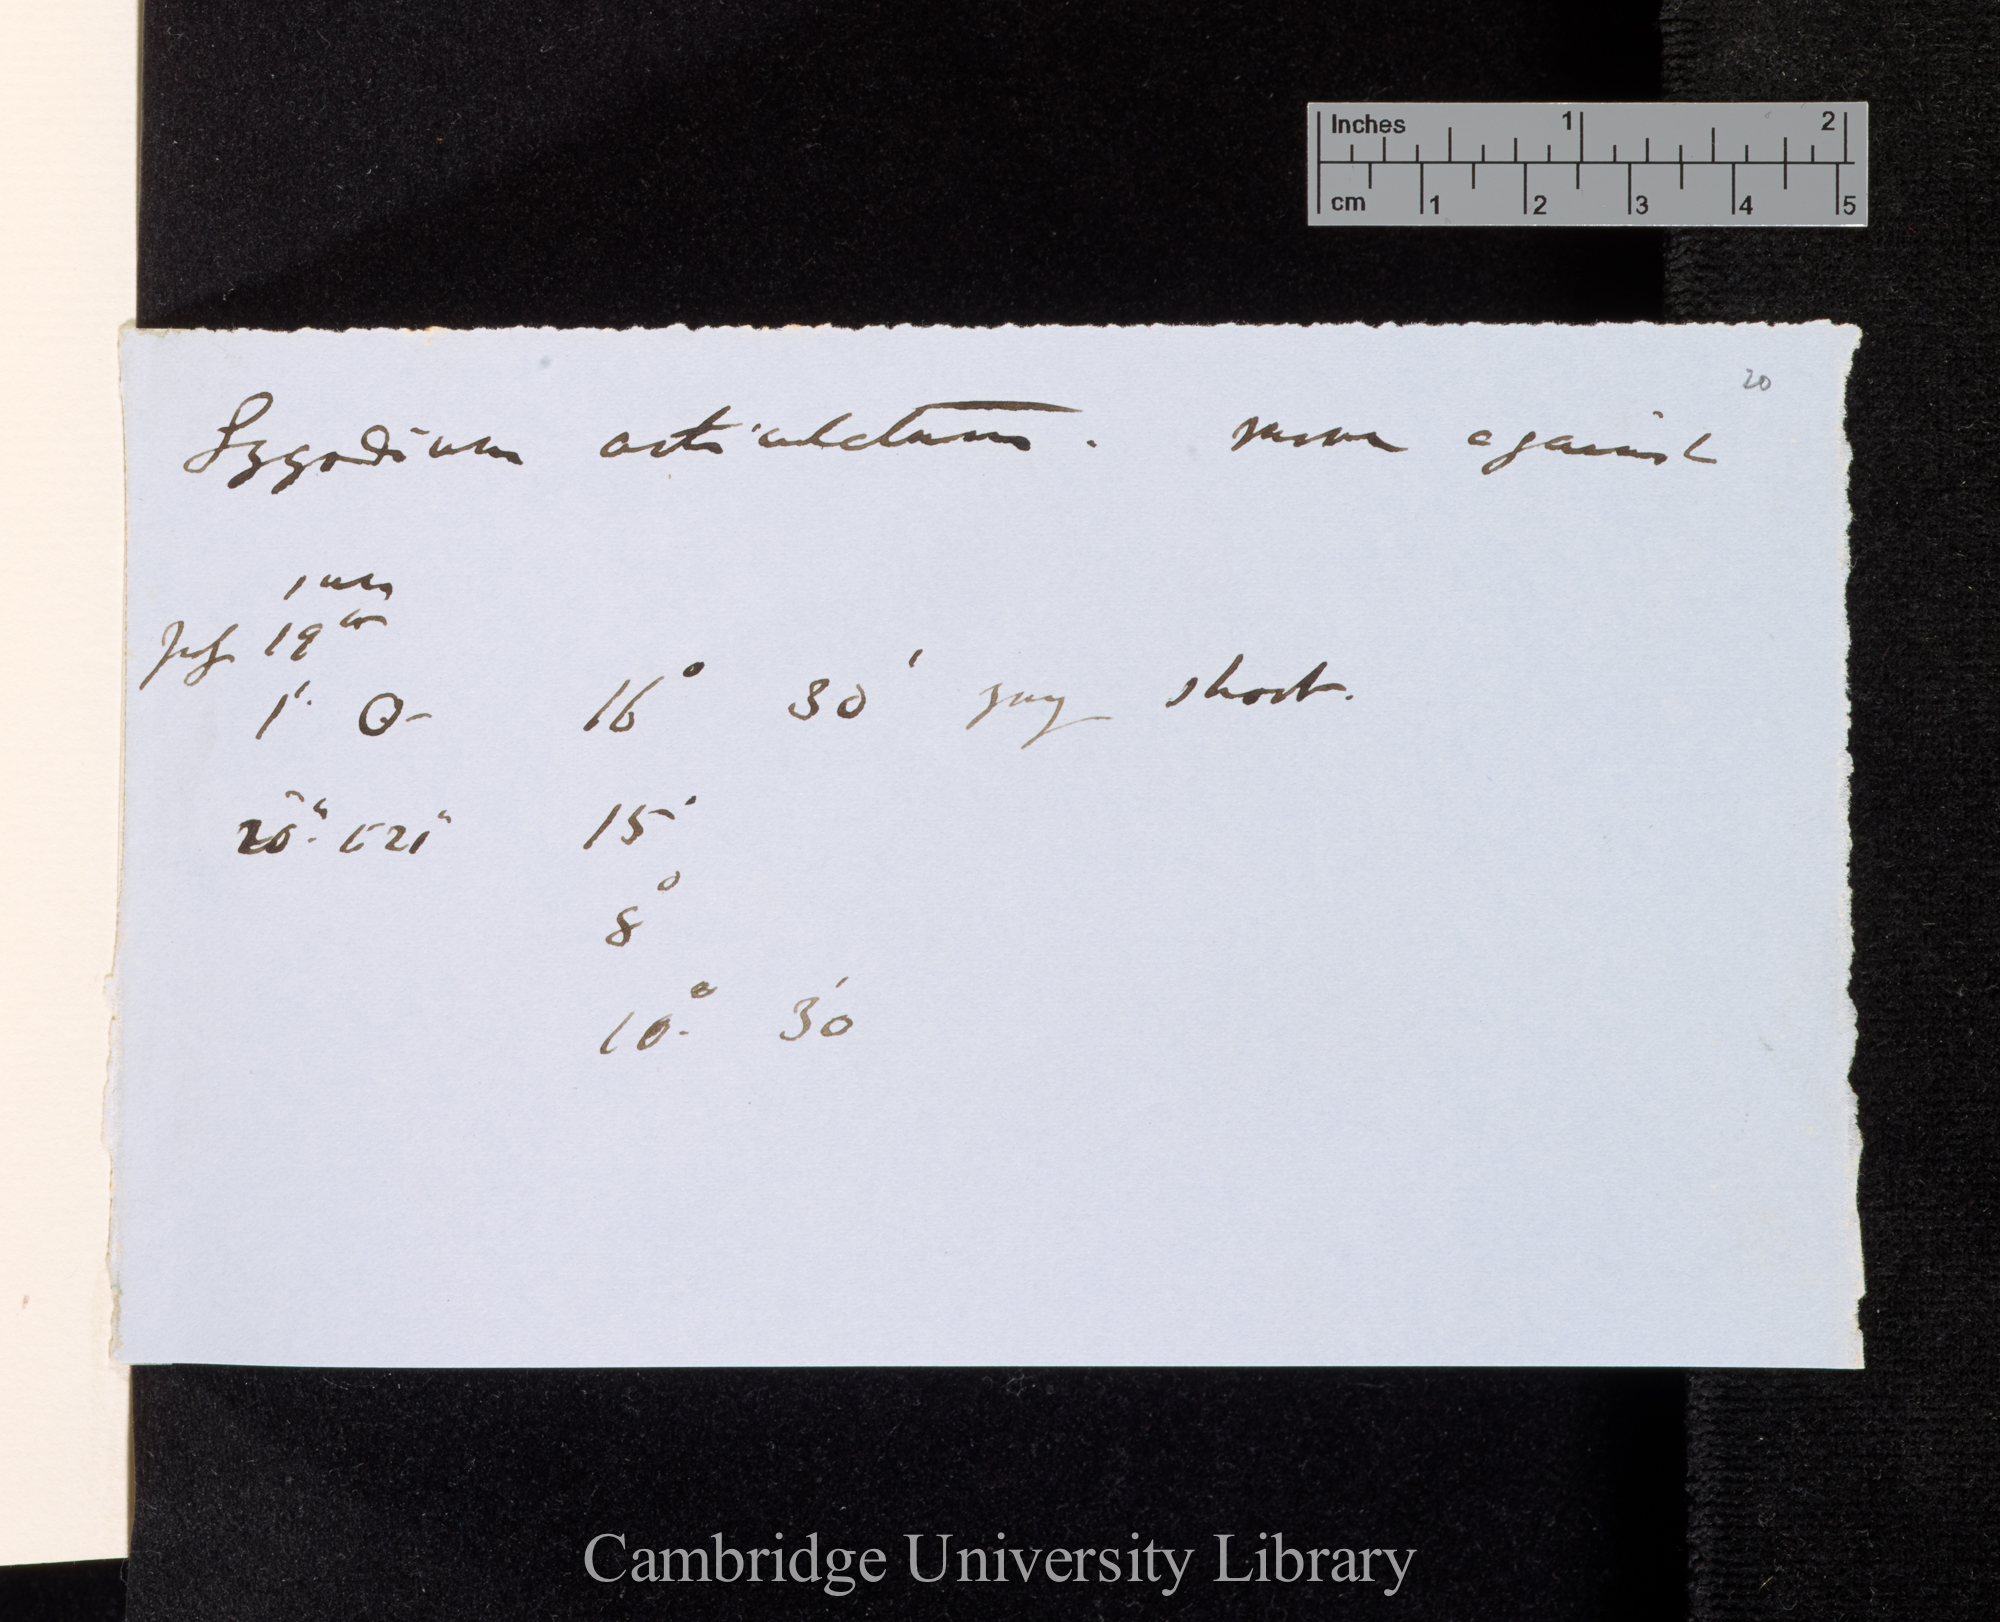 Inches 1 2
cm 1 2 3 4 5
20
Lygodium articulatum. move against
19
1' 16° 30' short.
20 21 15'
8°
10° 30'
Cambridge University Library